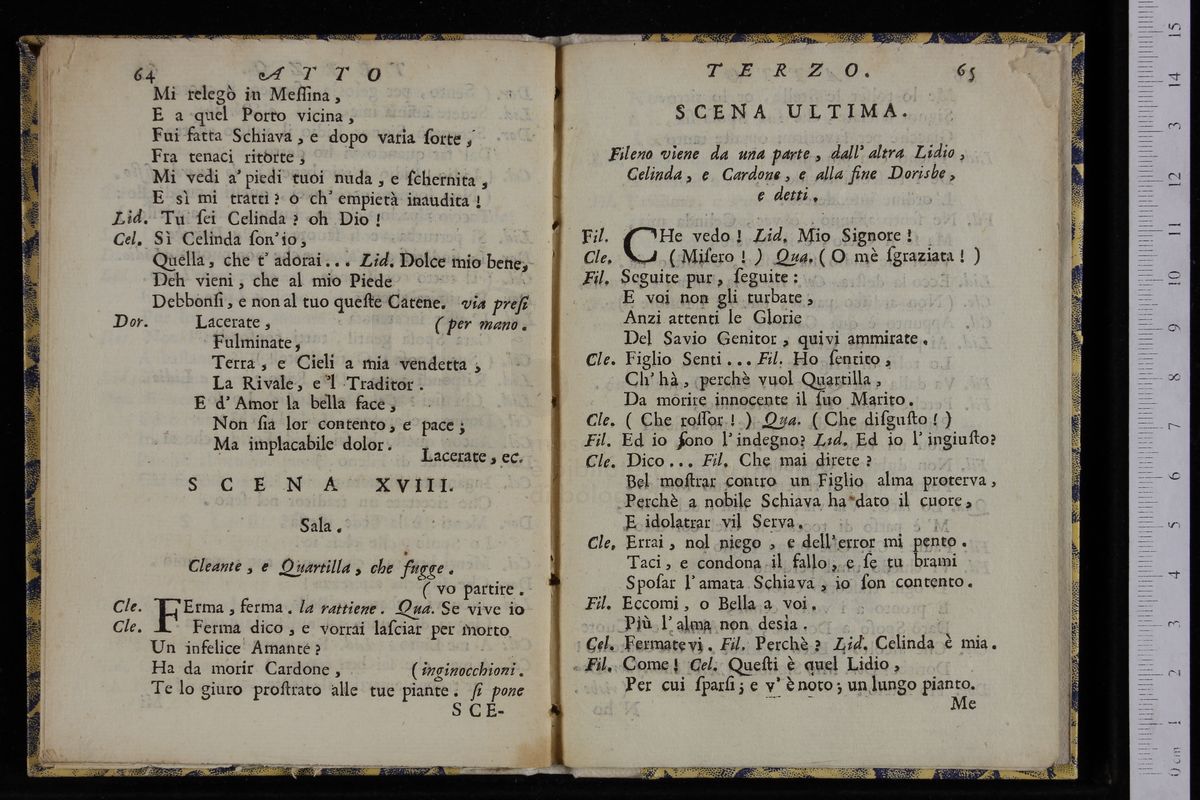 64 ATTO
Mi relegò in Meſſina,
E a quel Porto vicina,
Fui fatta Schiava, e dopo varia ſorte,
Fra tenaci ritorte,
Mi vedi a' piedi tuoi nuda, e ſchernita,
E sì mi tratti? o ch' empietà inaudita!
Lid. Tu ſei Celinda? oh Dio!
Cel. Sì Celinda ſon' io,
Quella, che t' adorai... Lid. Dolce mio bene,
Deh vieni, che al mio Piede
Debbonſi, e non al tuo queſte Catene. via preſi
Dor. Lacerate, (per mano.
Fulminate,
Terra, e Cieli a mia vendetta,
La Rivale, e 'l Traditor.
E d' Amor la bella face,
Non ſia lor contento, e pace;
Ma implacabile dolor.
Lacerate, ec.
SCENA XVIII.
Sala.
Cleante, e Quartilla, che fugge.
(vo partire.
Cle. FErma, ferma. la rattiene. Qua. Se vive io
Cle. Ferma dico, e vorrai laſciar per morto
Un infelice Amante?
Ha da morir Cardone, (inginocchioni.
Te lo giuro proſtrato alle tue piante. ſi pone
SCE-
TERZO. 65
SCENA ULTIMA.
Fileno viene da una parte, dall' altra Lidio,
Celinda, e Cardone, e alla fine Dorisbe,
e detti.
Fil. CHe vedo! Lid. Mio Signore!
Cle. (Miſero!) Qua. (O mè ſgraziata!)
Fil. Seguite pur, ſeguite:
E voi non gli turbate,
Anzi attenti le Glorie
Del Savio Genitor, quivi ammirate.
Cle. Figlio Senti... Fil. Ho ſentito,
Ch' hà, perchè vuol Quartilla,
Da morire innocente il ſuo Marito.
Cle. (Che roſſor!) Qua. (Che diſguſto!)
Fil. Ed io ſono l' indegno? Lid. Ed io l' ingiuſto?
Cle. Dico... Fil. Che mai direte?
Bel moſtrar contro un Figlio alma proterva,
Perchè a nobile Schiava ha dato il cuore,
E idolatrar vil Serva.
Cle. Errai, nol niego, e dell' error mi pento.
Taci, e condona il fallo, e ſe tu brami
Spoſar l' amata Schiava, io ſon contento.
Fil. Eccomi, o Bella a voi.
Più l' alma non desìa.
Cel. Fermatevi. Fil. Perchè? Lid. Celinda è mia.
Fil. Come! Cel. Queſti è quel Lidio,
Per cui ſparſi; e v' è noto; un lungo pianto.
Me
0 cm 1 2 3 4 5 6 7 8 9 10 11 12 13 14 15